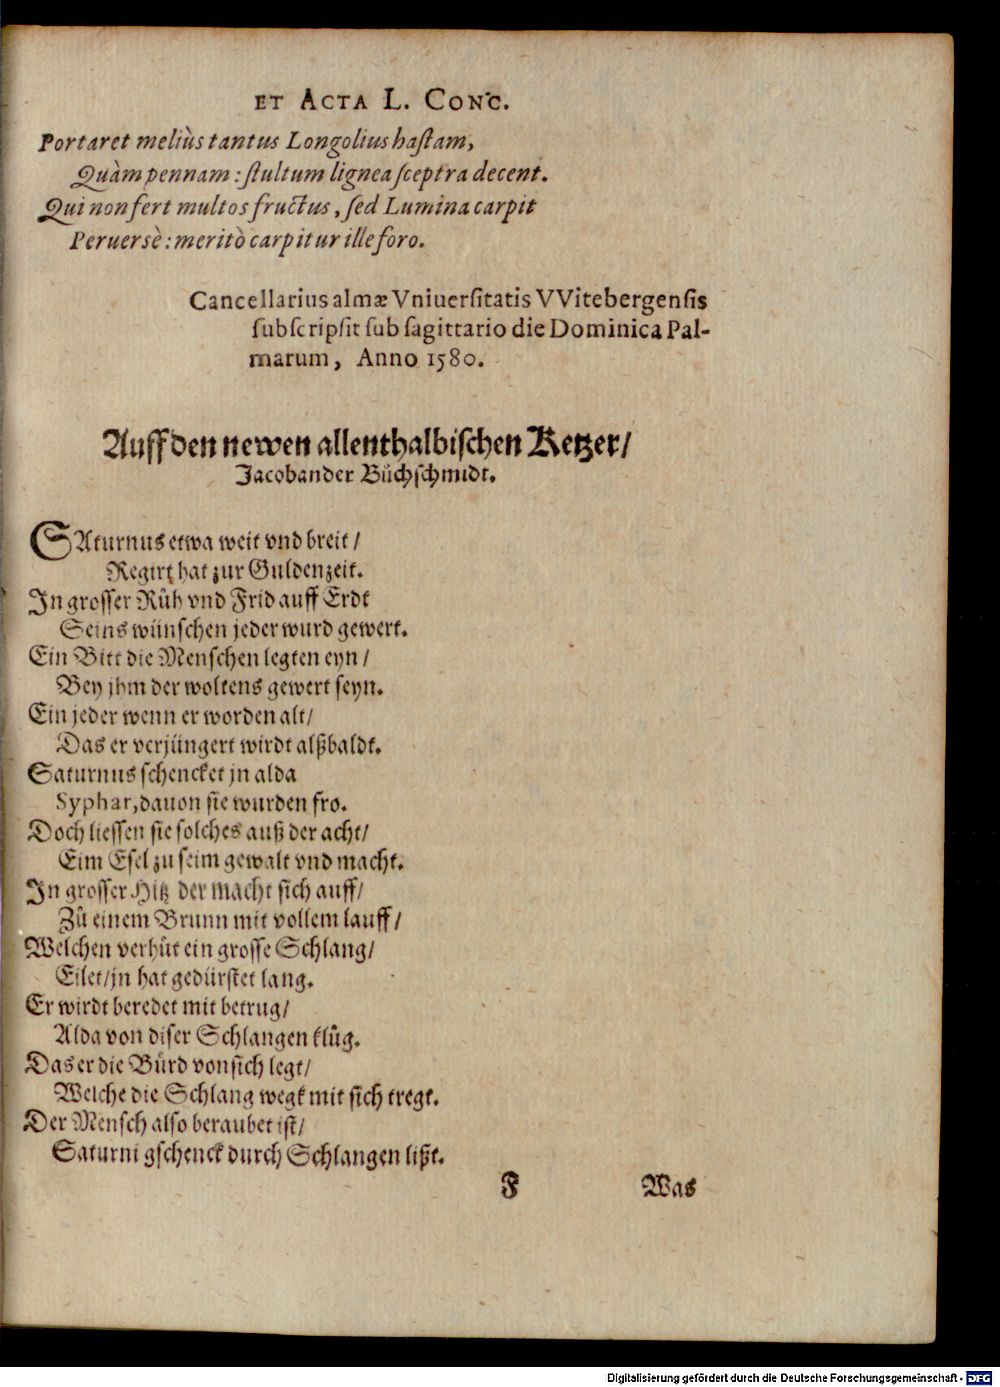 ET ACTA L. CONC.
Portaret meliùs tantus Longolius hastam,
Quàm pennam: stultum lignea sceptra decent.
Qui non fert multos fructus, sed Lumina carpit
Peruersè: meritò carpitur ille foro.
Cancellarius almæ Vniuersitatis VVitebergensis
subscripsit sub sagittario die Dominica Pal-
marum, Anno 1580.
Auff den newen allenthalbischen Ketzer/
Jacobander Bůchschmidt.
SAturnus etwa weit vnd breit/
Regirt hat zur Guldenzeit.
In grosser Růh vnd Frid auff Erdt
Seins wünschen jeder wurd gewert.
Ein Bitt die Menschen legten eyn/
Bey jhm der woltens gewert seyn.
Ein jeder wenn er worden alt/
Das er verjüngert wirdt alßbaldt.
Saturnus schencket jn alda
Syphar, dauon sie wurden fro.
Doch liessen sie solches auß der acht/
Eim Esel zu seim gewalt vnd macht.
In grosser Hitz der macht sich auff/
Zů einem Brunn mit vollem lauff/
Welchen verhůt ein grosse Schlang/
Eilet/jn hat gedürstet lang.
Er wirdt beredet mit betrug/
Alda von diser Schlangen klůg.
Das er die Bürd von sich legt/
Welche die Schlang wegk mit sich tregt.
Der Mensch also beraubet ist/
Saturni gschenck durch Schlangen lißt.
F Was
Digitalisierung gefördert durch die Deutsche Forschungsgemeinschaft - DFG